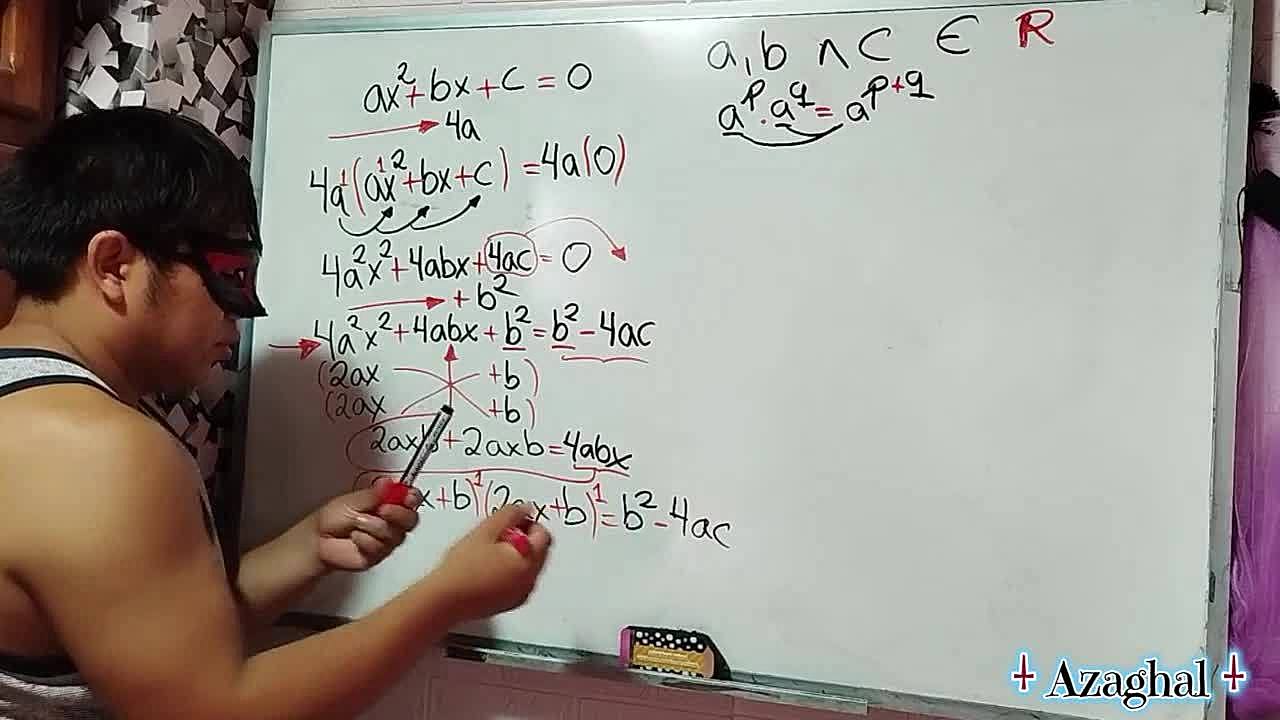 ax² + bx + c = 0
4a
4a¹(a¹x² + bx + c) = 4a(0)
4a²x² + 4abx + 4ac = 0
+ b²
4a²x² + 4abx + b² = b² - 4ac
(2ax +b)
(2ax +b)
2axb + 2axb = 4abx
x + b)¹(2ax + b)¹ = b² - 4ac
a, b ∧ C ∈ R
aᵖ · a^q = a^(p+q)
Azaghal